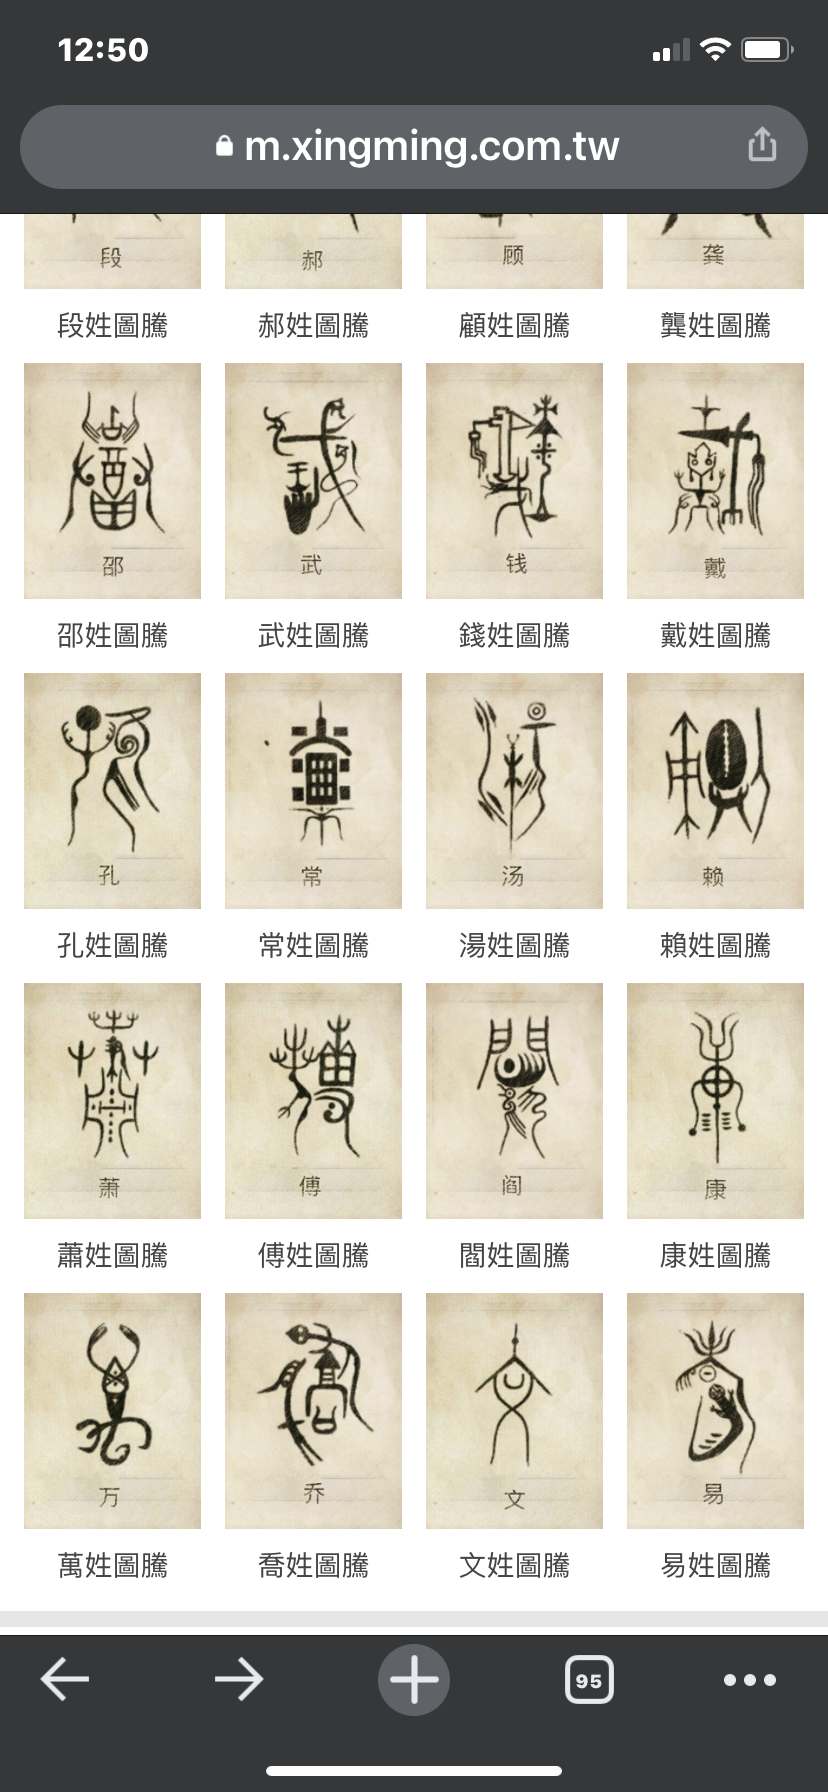 12:50
m.xingming.com.tw
段 郝 顾 龚
段姓圖騰 郝姓圖騰 顧姓圖騰 龔姓圖騰
邵 武 钱 戴
邵姓圖騰 武姓圖騰 錢姓圖騰 戴姓圖騰
孔 常 汤 赖
孔姓圖騰 常姓圖騰 湯姓圖騰 賴姓圖騰
萧 傅 阎 康
蕭姓圖騰 傅姓圖騰 閻姓圖騰 康姓圖騰
万 乔 文 易
萬姓圖騰 喬姓圖騰 文姓圖騰 易姓圖騰
95